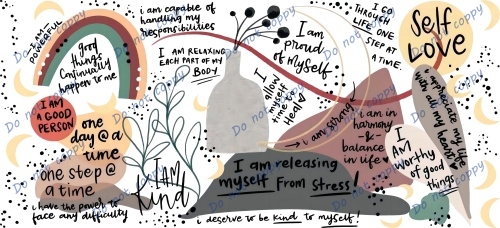 I AM
POWERFUL
good
things
Continually
happen to me
i am capable of
handling my
responsibilities
I AM RELAXING
EACH PART OF MY
BODY
I am
Proud
of myself
I GO
THROUGH
LIFE ONE
STEP AT
A TIME.
Self
Love
I allow
myself
time to
Heal
i am strong
i am in
harmony
&
balance
in life
i appreciate my life
with all my heart
I AM
A GOOD
PERSON
one
day @ a
time
one step @
a time
i have the power to
face any difficulty
I AM
Kind
I am releasing
myself From Stress!
I
AM
worthy
of good
things
i deserve to be kind to myself!
Do not coppy
Do not coppy
Do not coppy
Do not coppy
Do not coppy
Do not coppy